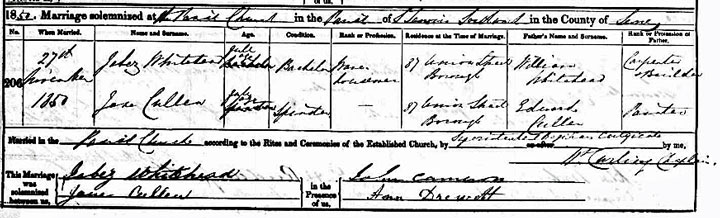 1850. Marriage solemnized at the Parish Church in the Parish of in the County of Surrey
No. When Married. Name and Surname. Age. Condition. Rank or Profession. Residence at the Time of Marriage. Father's Name and Surname. Rank or Profession of Father.
206 27th November 1850 Jabez Whitehead full age Bachelor 37 Union Street Borough William Whitehead Carpenter Builder
Jane Cullen full age Spinster — 37 Union Street Borough Edward Cullen Painter
Married in the Parish Church according to the Rites and Ceremonies of the Established Church, by Certificate or after by me,
This Marriage was solemnized between us, Jabez Whitehead Jane Cullen in the Presence of us, John Cameron Ann Drewett